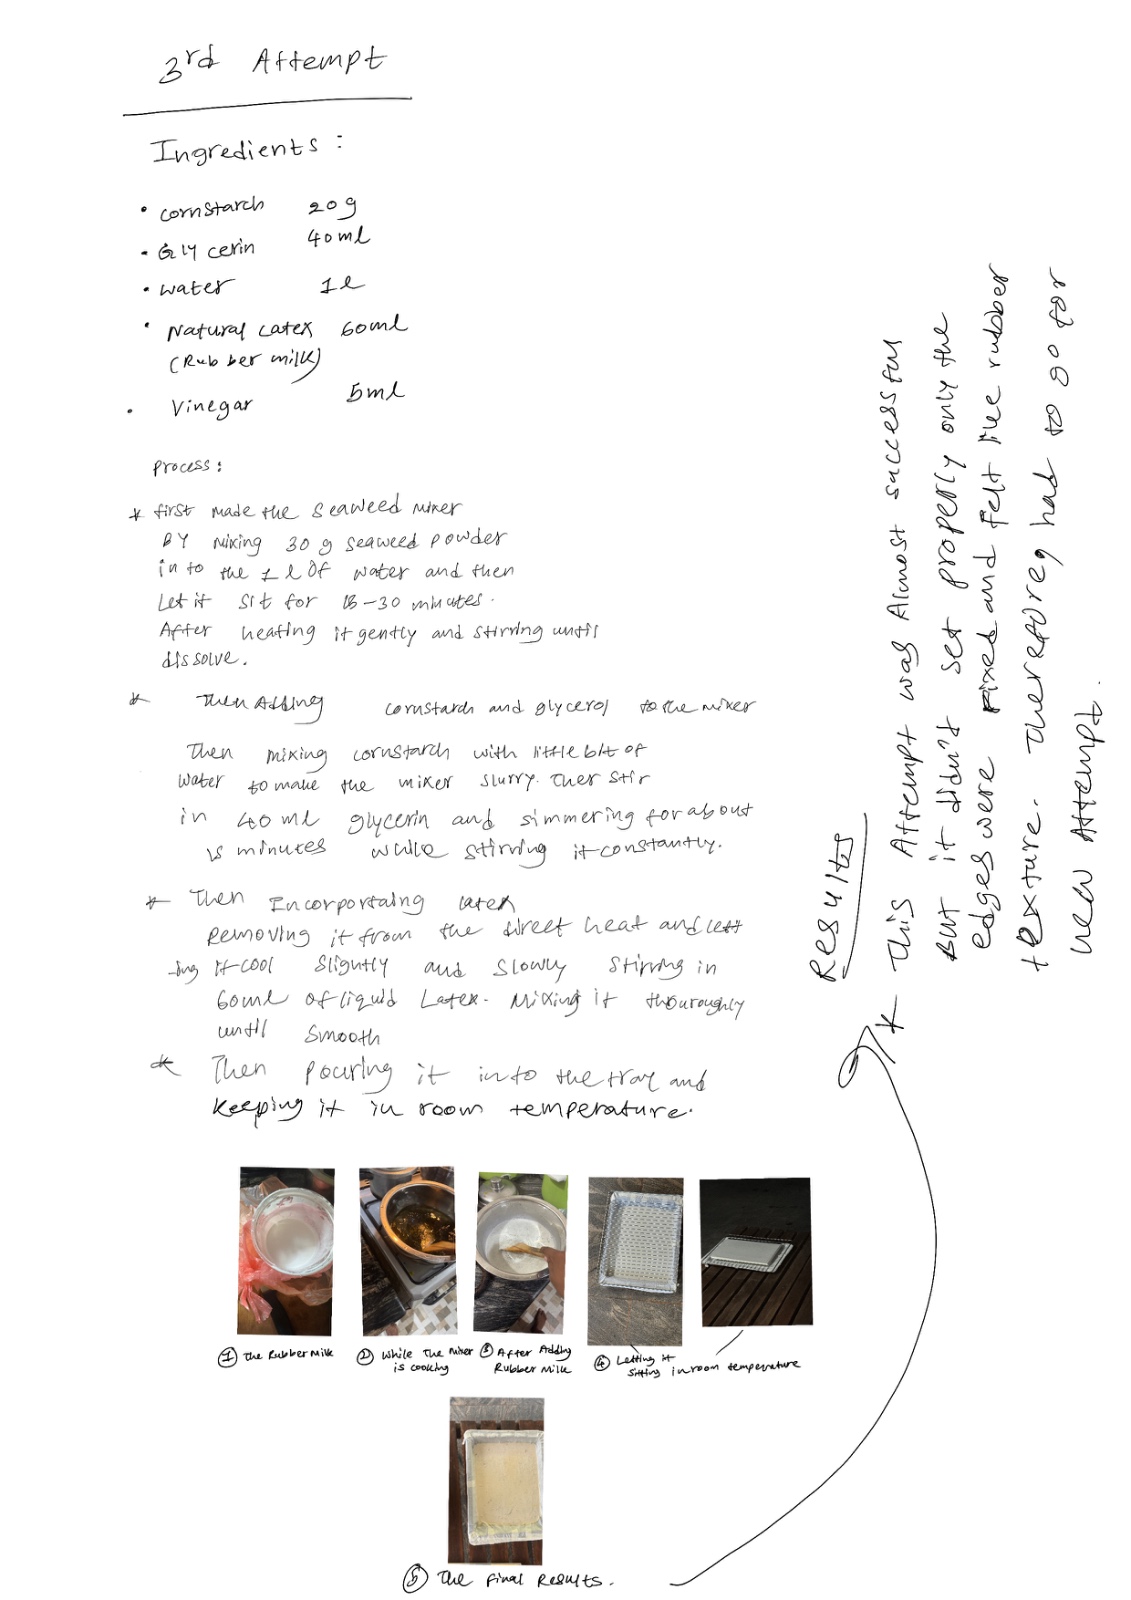 3rd Attempt
Ingredients :
• cornstarch 20g
• Glycerin 40ml
• water 1l
• Natural Latex 60ml
(Rubber milk)
• Vinegar 5ml
Process :
* first made the seaweed mixer
By mixing 30 g seaweed powder
in to the 1 l of water and then
Let it sit for 15-30 minutes.
After heating it gently and stirring until
dissolve.
* Then Adding cornstarch and glycerol to the mixer
Then mixing cornstarch with little bit of
water to make the mixer slurry. Then stir
in 40 ml glycerin and simmering for about
15 minutes while stirring it constantly.
* Then Incorportaing latex
Removing it from the direct heat and lett
ing it cool slightly and slowly stirring in
60ml of liquid Latex. Mixing it thouroughly
until smooth
* Then pouring it into the tray and
keeping it in room temperature.
① The Rubber Milk
② While The Mixer
is cooking
③ After Adding
Rubber Milk
④ Letting it
sitting in room temperature
⑤ The Final Results.
Results
* This Attempt was Almost successful
But it didn't set properly only the
edges were Fixed and felt like rubber
texture. Therefore, had to go for
new Attempt.